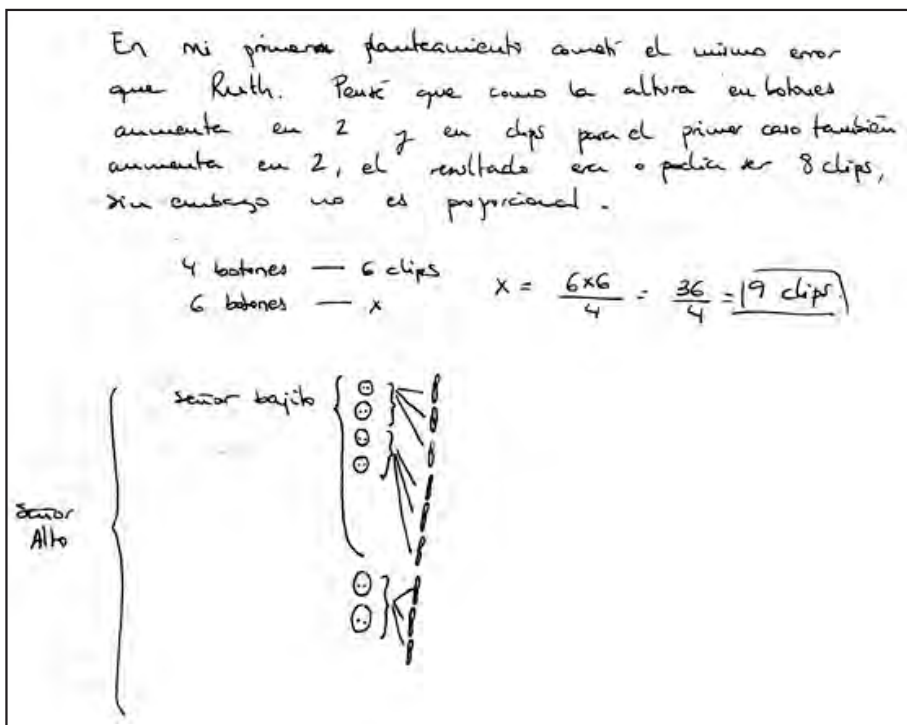 En mi primera planteamiento cometí el mismo error
que Ruth. Pensé que como la altura en botones
aumenta en 2 y en clips para el primer caso también
aumenta en 2, el resultado era o podía ser 8 clips,
sin embargo no es proporcional.
4 botones — 6 clips
6 botones — x
x = 6x6/4 = 36/4 = 9 clips.
señor bajito
Señor
Alto